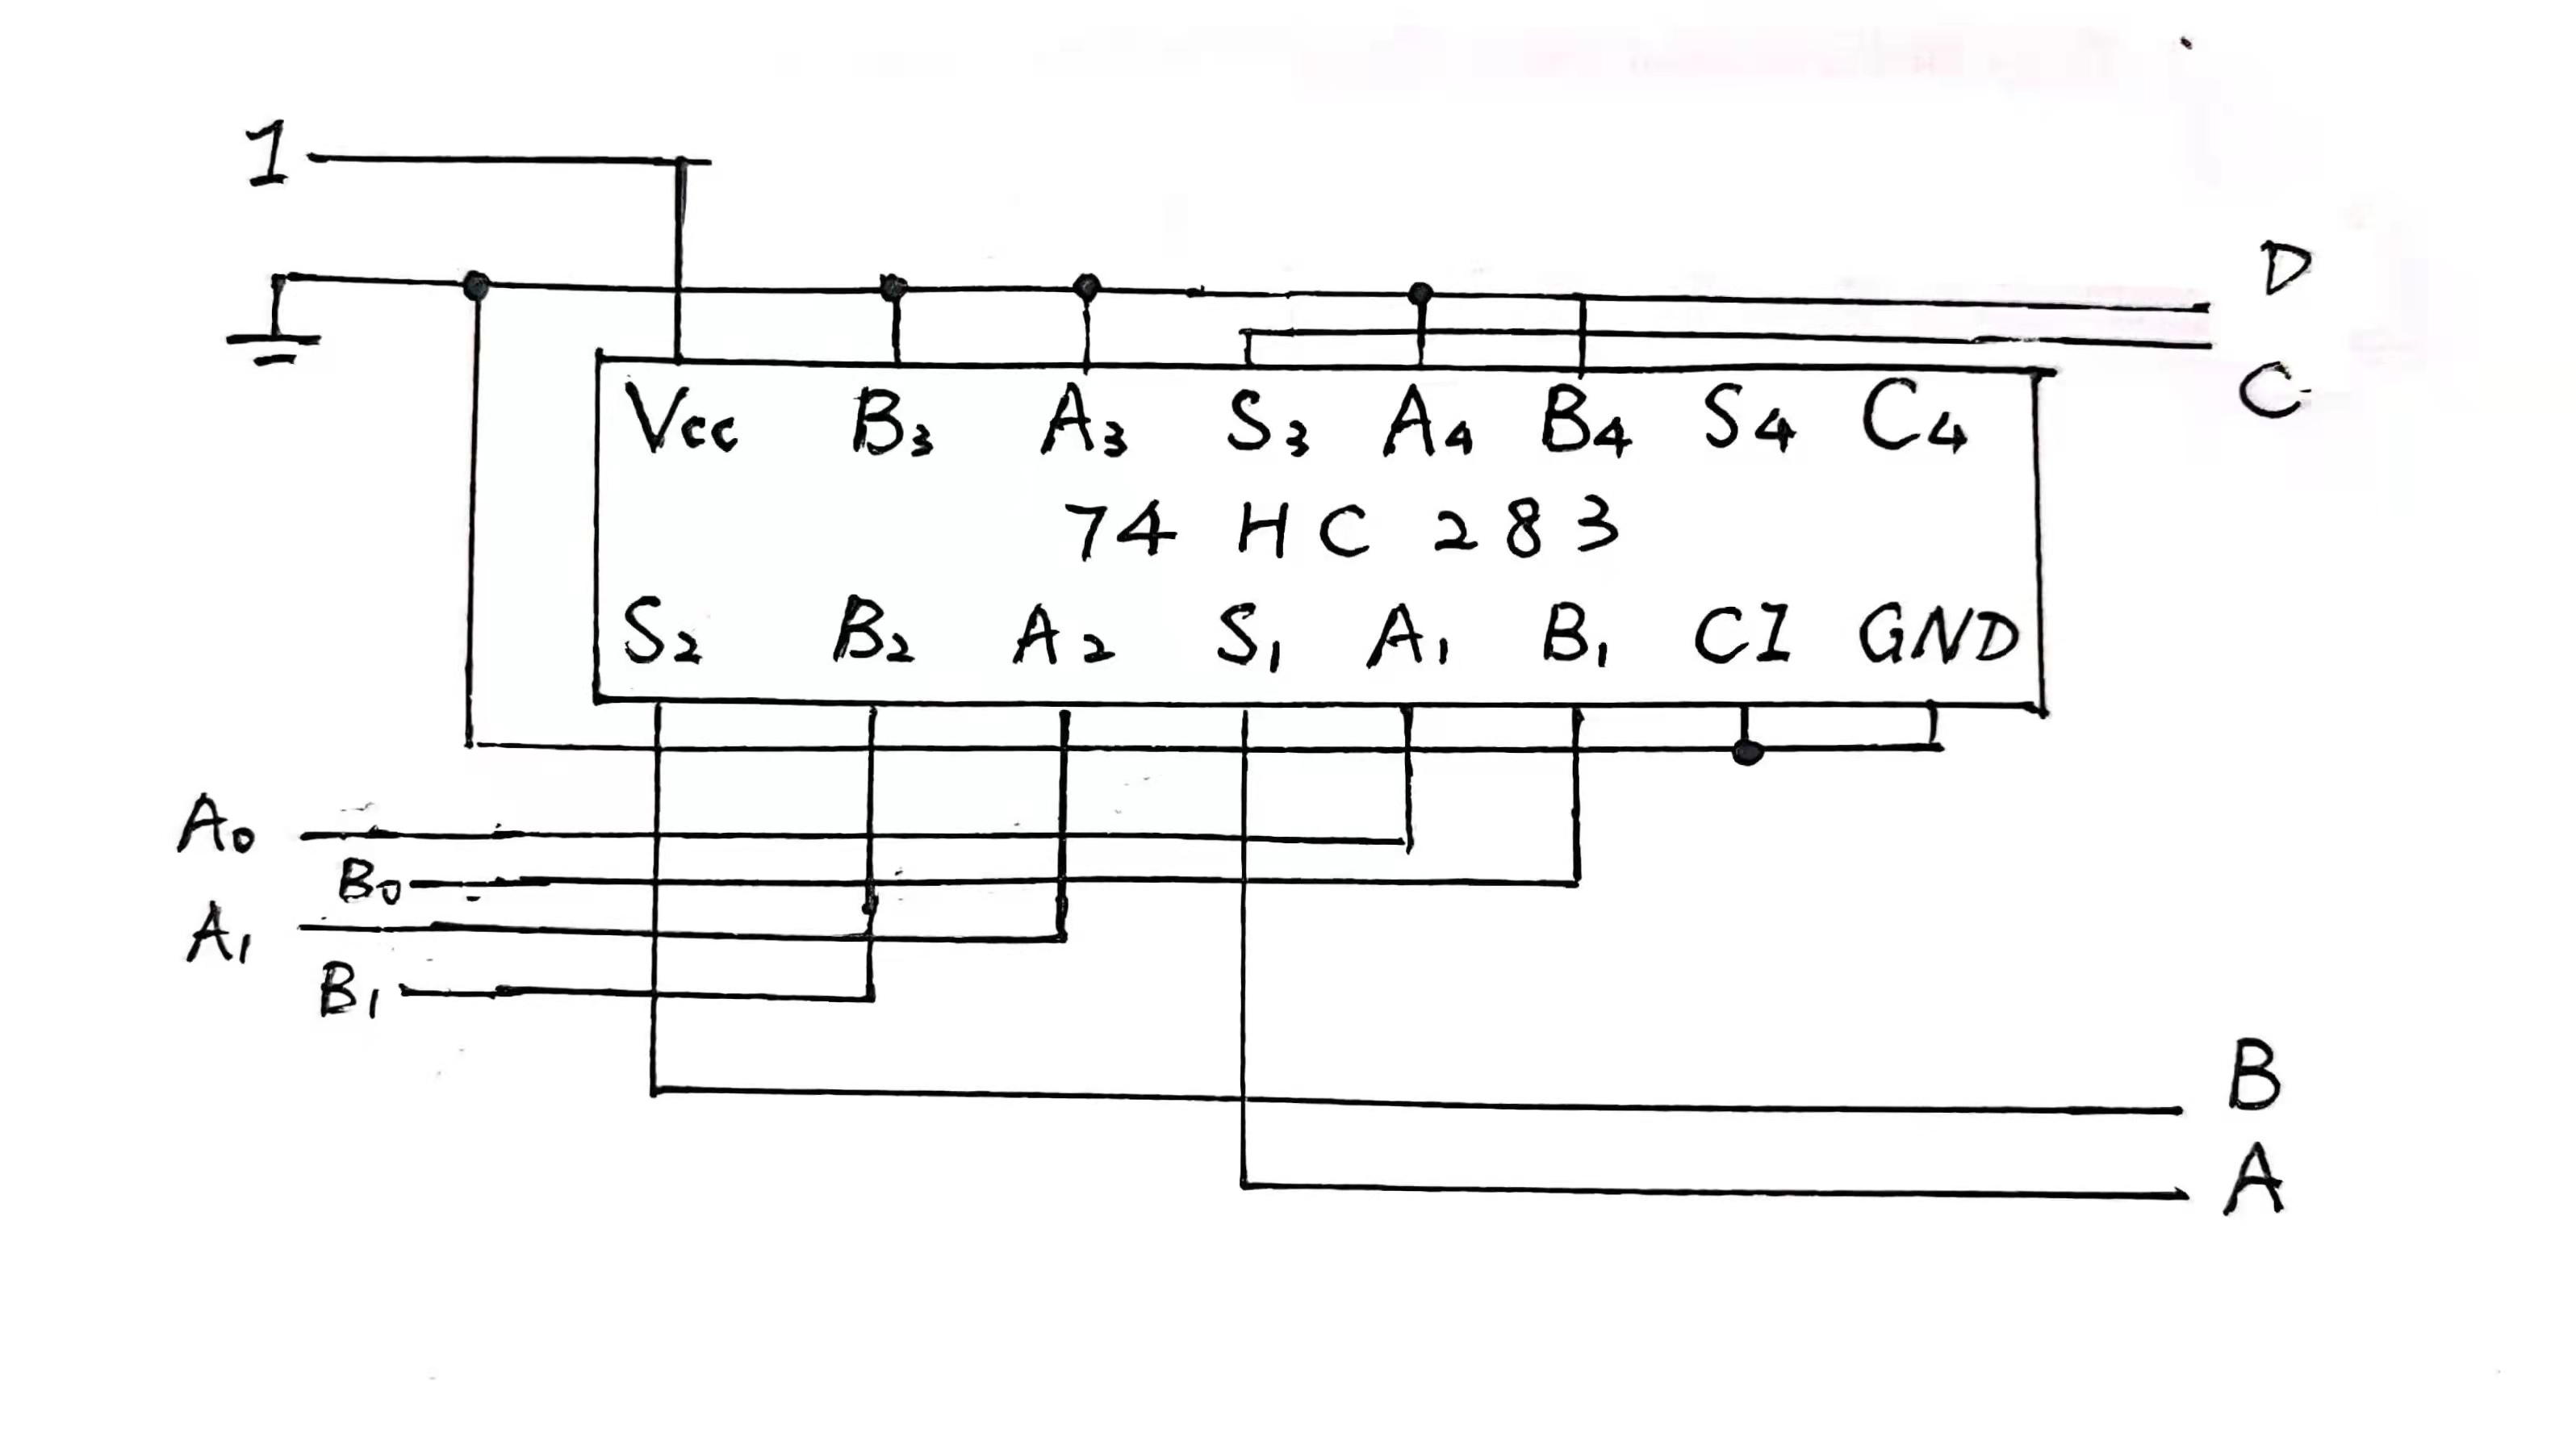 1
D
C
Vcc B₃ A₃ S₃ A₄ B₄ S₄ C₄
74 HC 283
S₂ B₂ A₂ S₁ A₁ B₁ CI GND
A₀
B₀
A₁
B₁
B
A